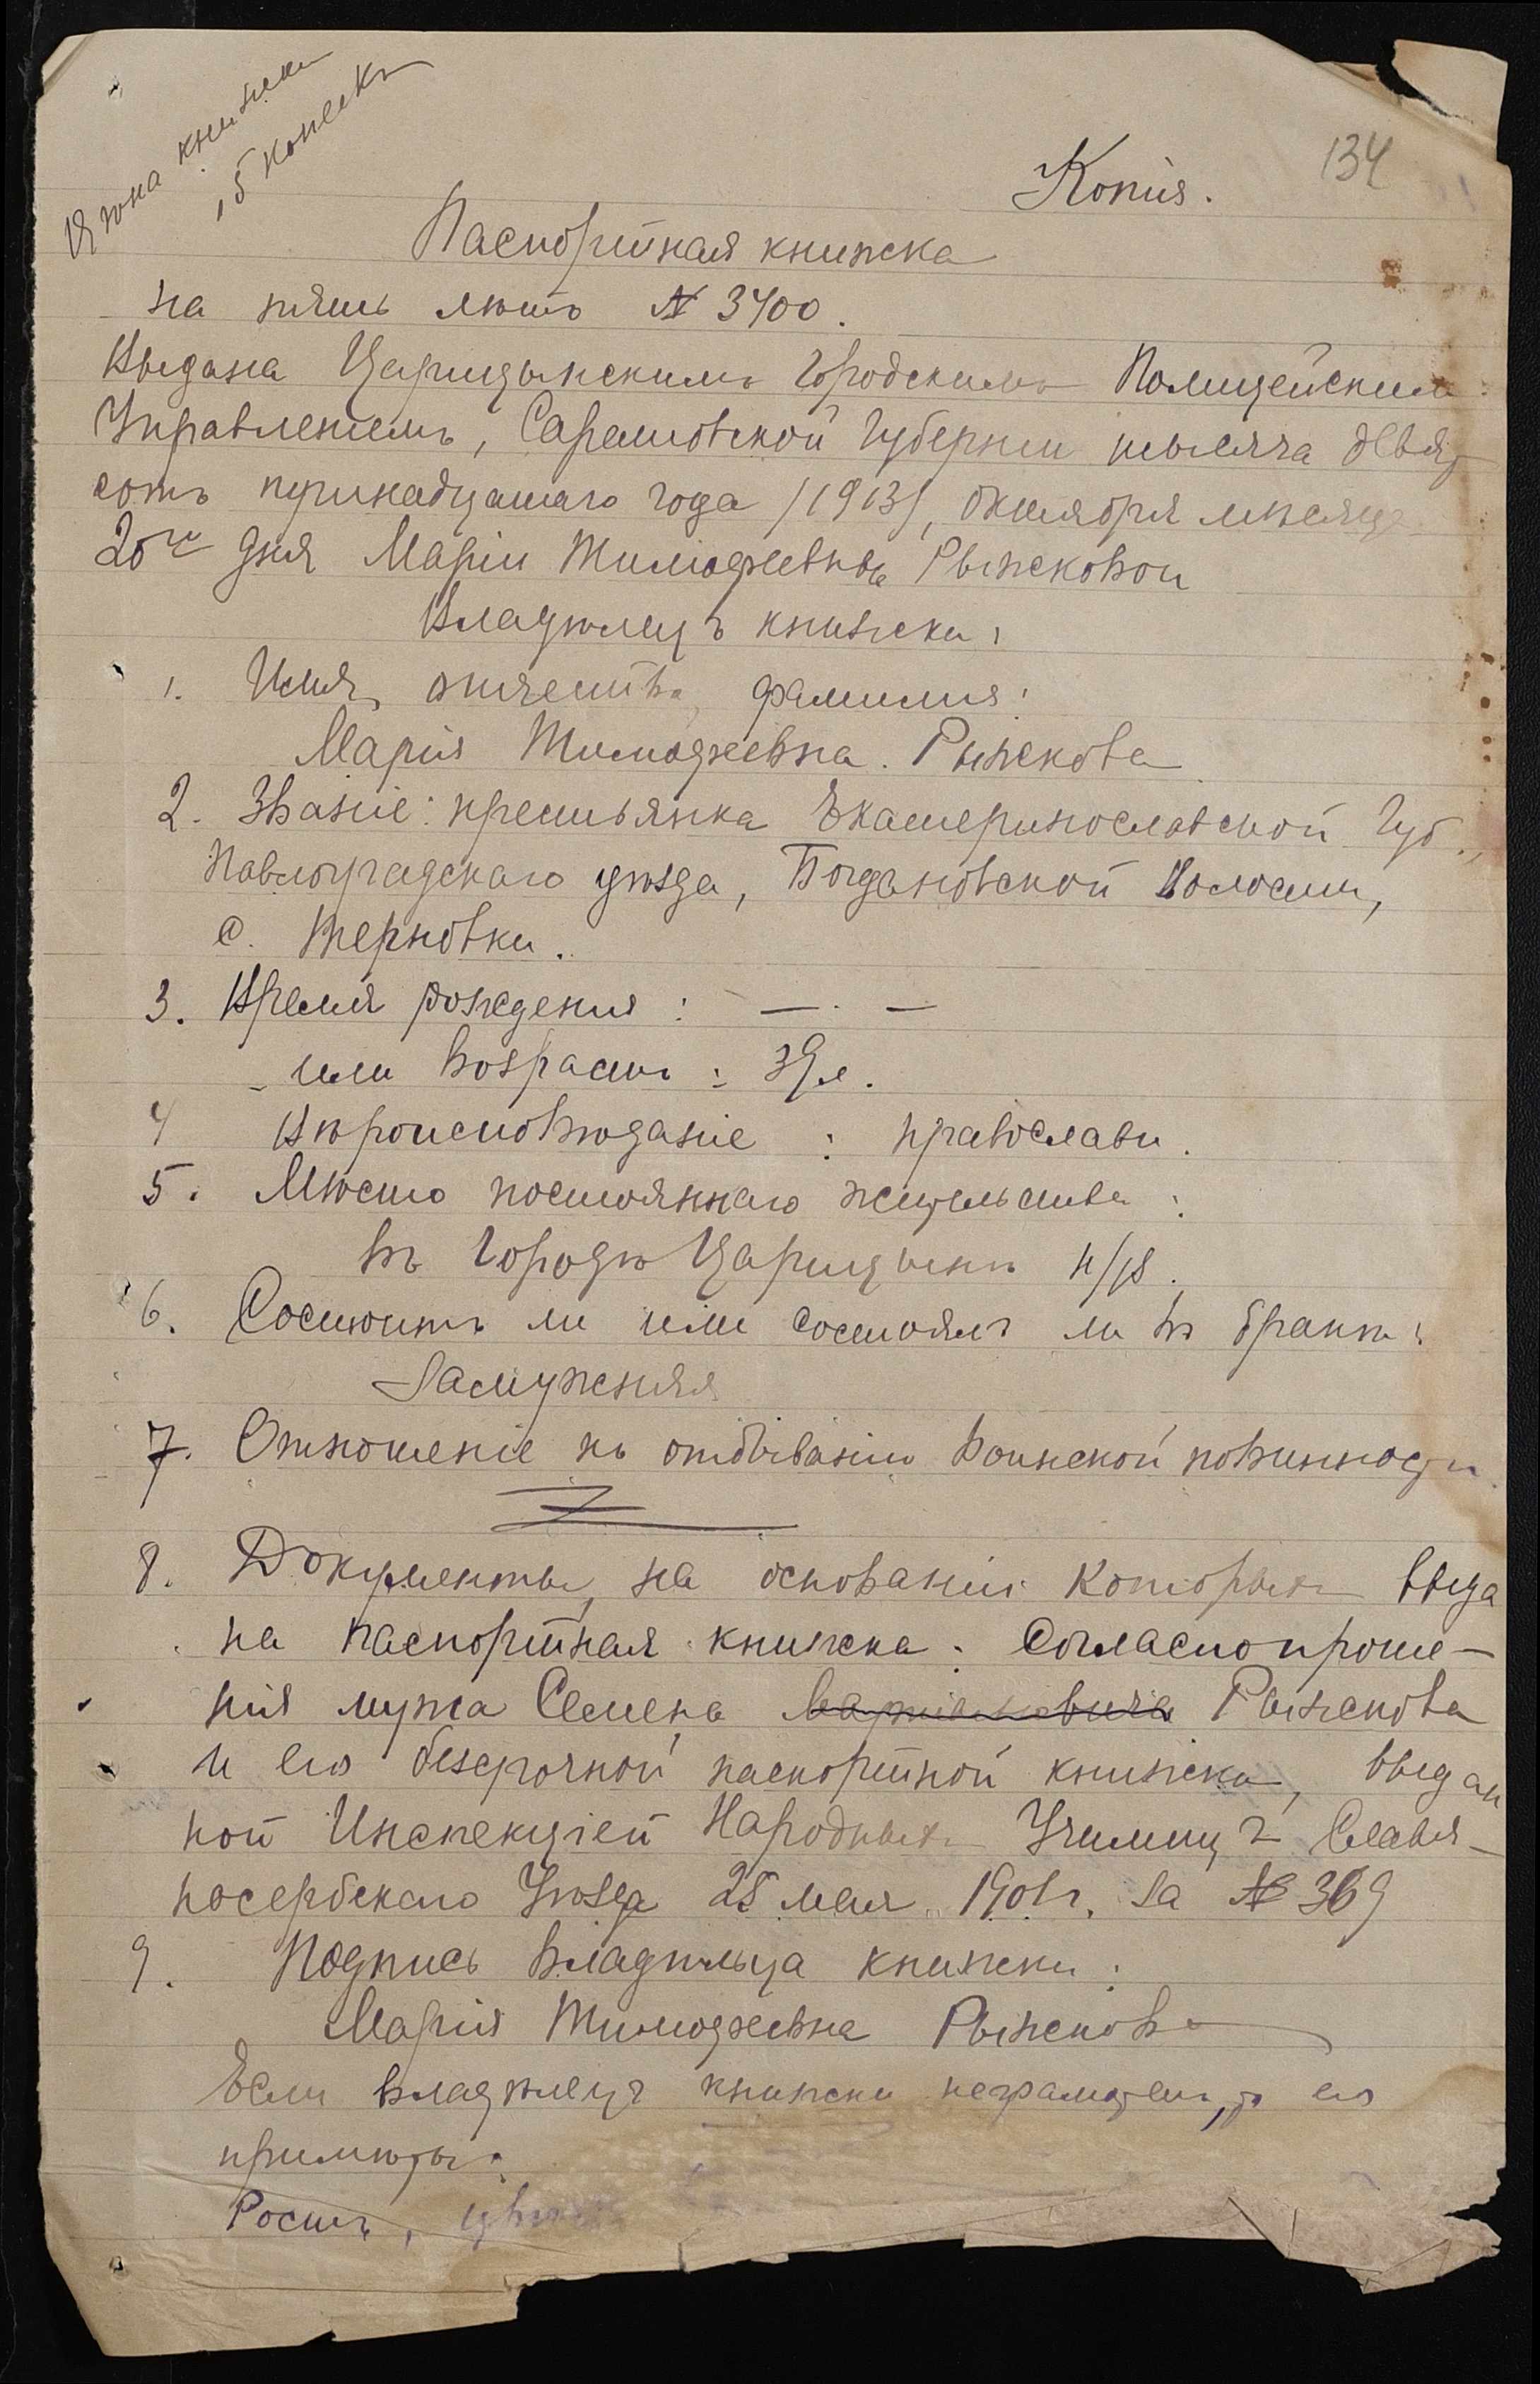 Цѣна книжки
15 копѣекъ
134
Копія.
Паспортная книжка
на пять лѣтъ № 3400.
Выдана Царицынскимъ Городскимъ Полицейскимъ
Управленіемъ, Саратовской Губерніи тысяча девят
сотъ тринадцатаго года /1913/, октября мѣсяца
20го дня Маріи Тимофеевнѣ Рыжковой
Владѣлецъ книжки:
1. Имя, отчество, фамилия:
Марія Тимофеевна Рыжкова
2. Званіе: крестьянка Екатеринославской Губ.,
Павлоградскаго уѣзда, Богдановской Волости,
с. Терновки.
3. Время рождения: — . —
или возрастъ: 39 л.
4 Вѣроисповѣданіе: православн.
5. Мѣсто постояннаго жительства:
въ Городѣ Царицынѣ н/В.
6. Состоитъ ли или состоялъ ли въ бракѣ:
Замужняя
7. Отношеніе къ отбыванію воинской повинности
8. Документы, на основаніи которыхъ выда
на паспортная книжка: Согласно проше-
нія мужа Семена Рыжкова
и его безсрочной паспортной книжки, выдан
ной Инспекціей Народныхъ Училищъ Славя-
носербскаго Уѣзда 25 мая 1901 г. за № 369
9. Подпись владѣльца книжки:
Марія Тимофеевна Рыжкова
Если владѣлецъ книжки неграмотенъ, то его
примѣты:
Ростъ,